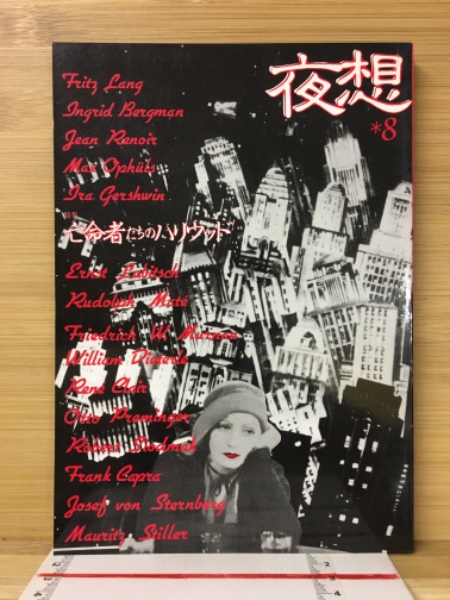 夜想
*8
Fritz Lang
Ingrid Bergman
Jean Renoir
Max Ophüls
Ira Gershwin
特集
亡命者たちのハリウッド
Ernst Lubitsch
Rudolph Maté
Friedrich W Murnau
William Dieterle
René Clair
Otto Preminger
Robert Siodmak
Frank Capra
Josef von Sternberg
Mauritz Stiller